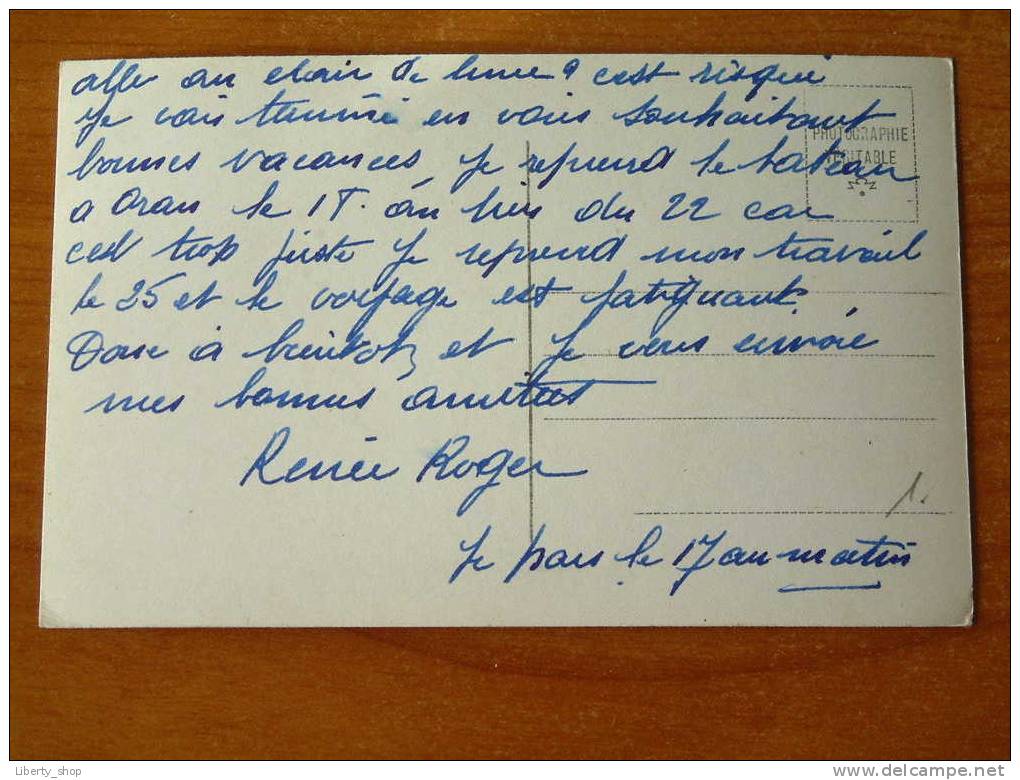 aller au clair de lune, c'est risqué
Je vais terminé en vous souhaitant
bonnes vacances, Je reprend le bateau
a Oran le 17. au lieu du 22 car
cest trop juste Je reprend mon travail
le 25 et le voyage est fatiguant.
Donc à bientot, et Je vous envoie
mes bonnes amities
Renée Roger
Je pars le 17 au matin
PHOTOGRAPHIE
VERITABLE
1.
Liberty_shop
www.delcampe.net